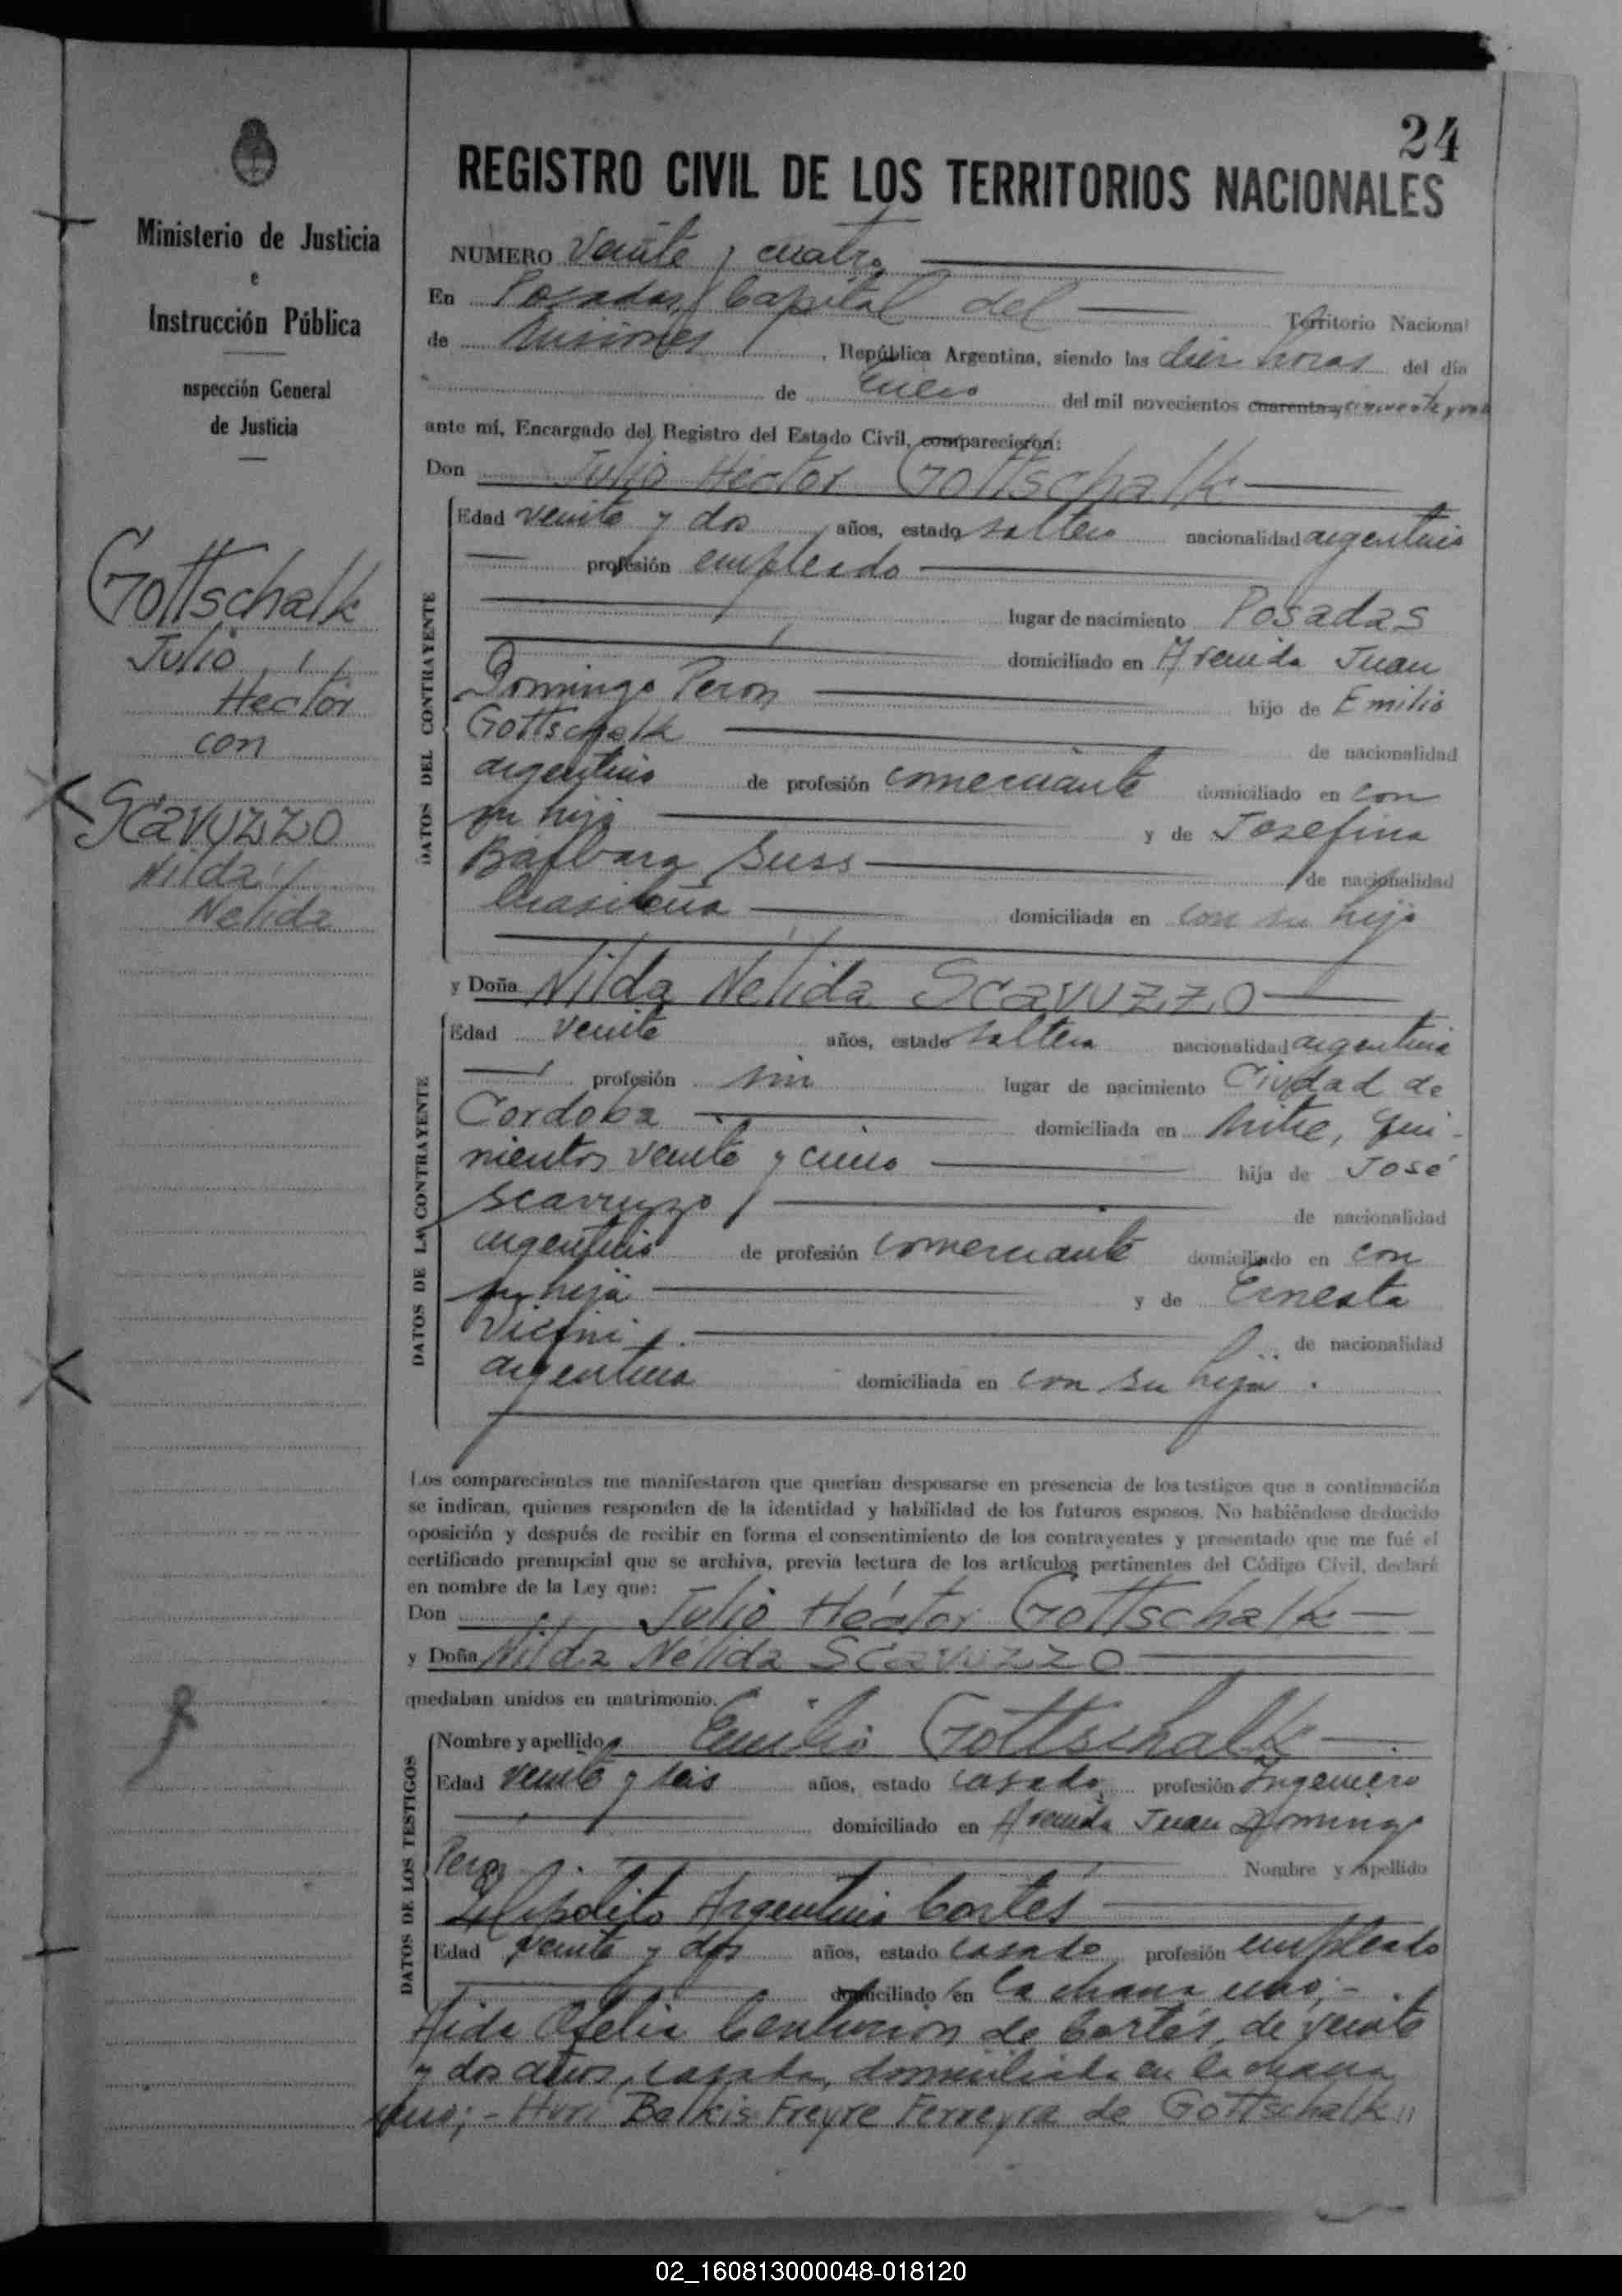 24
REGISTRO CIVIL DE LOS TERRITORIOS NACIONALES
Ministerio de Justicia
e
Instrucción Pública
nspección General
de Justicia
Gottschalk
Julio
Hector
con
Scavuzzo
Nilda
Nelida
NUMERO veinte y cuatro
En Posadas, Capital del Territorio Nacional
de Misiones, República Argentina, siendo las diez horas del día
de Enero del mil novecientos cuarenta y cincuenta y uno
ante mí, Encargado del Registro del Estado Civil, comparecieron:
Don Julio Héctor Gottschalk
DATOS DEL CONTRAYENTE
Edad veinte y dos años, estado soltero nacionalidad argentino
profesión empleado
lugar de nacimiento Posadas
domiciliado en Avenida Juan
Domingo Peron hijo de Emilio
Gottschalk de nacionalidad
argentino de profesión comerciante domiciliado en con
su hijo y de Josefina
Bárbara Suss de nacionalidad
brasileña domiciliada en con su hijo
y Doña Nilda Nélida Scavuzzo
DATOS DE LA CONTRAYENTE
Edad veinte años, estado soltera nacionalidad argentina
profesión sin lugar de nacimiento Ciudad de
Cordoba domiciliada en Mitre, qui-
nientos veinte y cinco hija de José
Scavuzzo de nacionalidad
argentino de profesión comerciante domiciliado en con
su hija y de Ernesta
Vicini de nacionalidad
argentina domiciliada en con su hija.
Los comparecientes me manifestaron que querían desposarse en presencia de los testigos que a continuación
se indican, quienes responden de la identidad y habilidad de los futuros esposos. No habiéndose deducido
oposición y después de recibir en forma el consentimiento de los contrayentes y presentado que me fué el
certificado prenupcial que se archiva, previa lectura de los artículos pertinentes del Código Civil, declaré
en nombre de la Ley que:
Don Julio Héctor Gottschalk
y Doña Nilda Nélida Scavuzzo
quedaban unidos en matrimonio.
DATOS DE LOS TESTIGOS
Nombre y apellido Emilio Gottschalk
Edad veinte y seis años, estado casado profesión Ingeniero
domiciliado en Avenida Juan Domingo
Peron Nombre y apellido
Hipolito Argentino Cortés
Edad veinte y dos años, estado casado profesión empleado
domiciliado en la chacra uno;-
Aida Ofelia Centurion de Cortés, de veinte
y dos años, casada, domiciliada en la chacra
uno;- Huri Belkis Freyre Ferreyra de Gottschalk
02_160813000048-018120